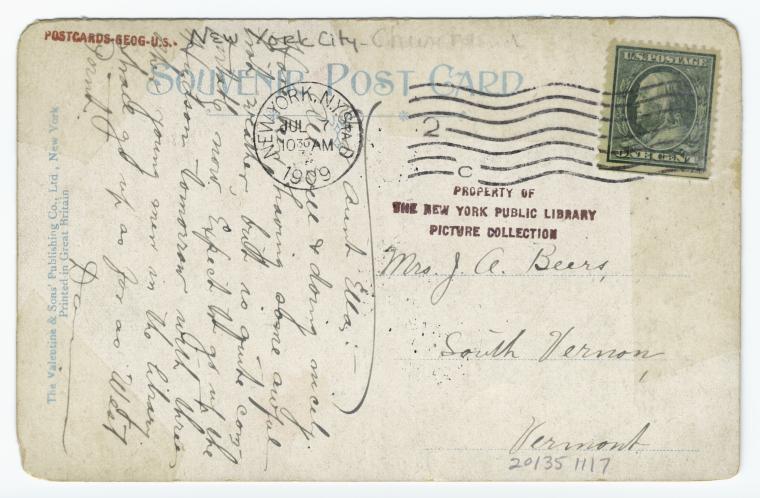 POSTCARDS-GEOG-U.S.-
New York City - Churches
SOUVENIR POST CARD
NEW YORK, N.Y. STA. D
JUL
10 30 AM
1909
2
C
U.S. POSTAGE
ONE CENT
PROPERTY OF
THE NEW YORK PUBLIC LIBRARY
PICTURE COLLECTION
Aunt Ella: -
well & doing nicely.
having some awful
hot weather but is quite com-
fortable now. Expect to go up the
Hudson tomorrow with three
other young men in the library
Shall go up as far as West
Point.
Mrs. J. A. Beers,
South Vernon,
Vermont.
20135 1117
The Valentine & Sons' Publishing Co., Ltd., New York
Printed in Great Britain